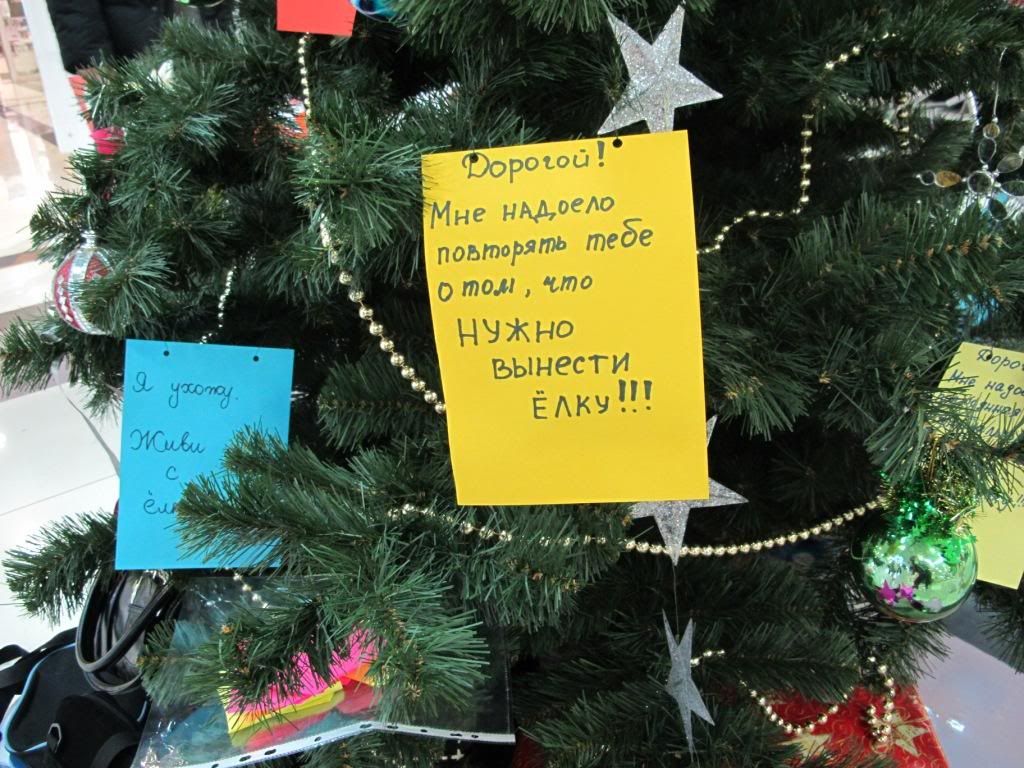 Дорогой!
Мне надоело
повторять тебе
о том, что
НУЖНО
ВЫНЕСТИ
ЁЛКУ!!!
Я ухожу.
Живи
с
Мне